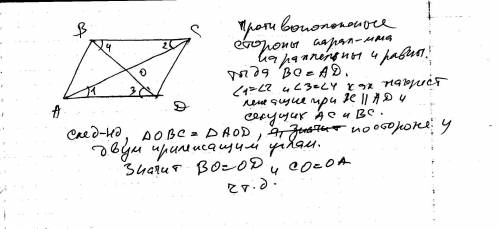 B
C
4
2
O
1
3
A
D
Противоположные
стороны парал-мма
параллельны и равны.
Тогда BC=AD.
∠1=∠2 и ∠3=∠4 как накрест
лежащие при BC || AD и
секущих AC и BC.
след-но, △OBC = △AOD, по стороне и
двум прилежащим углам.
Значит BO=OD и CO=OA
ч.т.д.